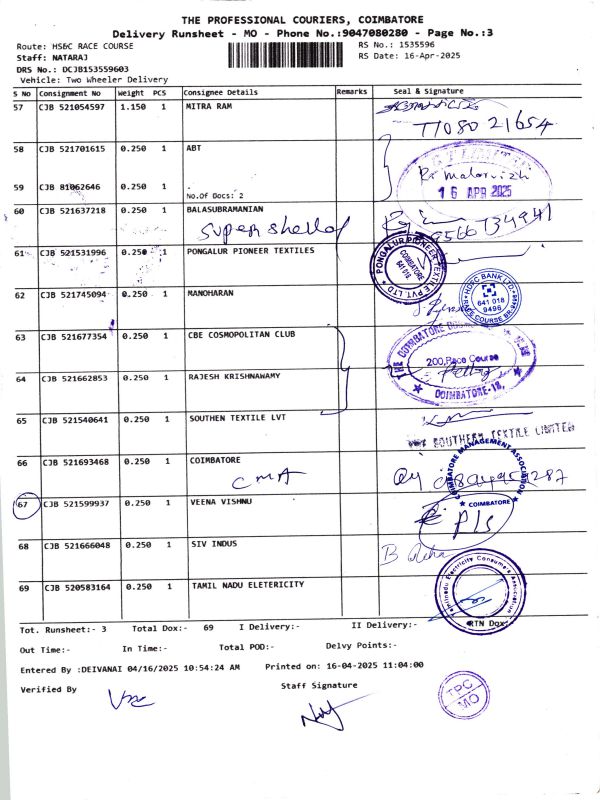 THE PROFESSIONAL COURIERS, COIMBATORE
Delivery Runsheet - MO - Phone No.:9047080280 - Page No.:3
Route: HS&C RACE COURSE
RS No.: 1535596
Staff: NATARAJ
RS Date: 16-Apr-2025
DRS No.: DCJB153559603
Vehicle: Two Wheeler Delivery
S No Consignment No Weight PCS Consignee Details Remarks Seal & Signature
57 CJB 521054597 1.150 1 MITRA RAM
58 CJB 521701615 0.250 1 ABT
59 CJB 81062646 0.250 1
No.Of Docs: 2
Malarvizhi
16 APR 2025
60 CJB 521637218 0.250 1 BALASUBRAMANIAN
Super shellof
9566734941
61 CJB 521531996 0.250 1 PONGALUR PIONEER TEXTILES
PONGALUR PIONEER TEXTILE PVT. LTD
COIMBATORE
641 018
62 CJB 521745094 0.250 1 MANOHARAN
HDFC BANK LTD
641 018
9496
RACE COURSE BR-9496
63 CJB 521677354 0.250 1 CBE COSMOPOLITAN CLUB
THE COIMBATORE
200, Race Course
COIMBATORE-18.
64 CJB 521662853 0.250 1 RAJESH KRISHNAWAMY
65 CJB 521540641 0.250 1 SOUTHEN TEXTILE LVT
SOUTHERN TEXTILE LIMITED
66 CJB 521693468 0.250 1 COIMBATORE
CMA
COIMBATORE MANAGEMENT ASSOCIATION
COIMBATORE
67 CJB 521599937 0.250 1 VEENA VISHNU
P/s
68 CJB 521666048 0.250 1 SIV INDUS
69 CJB 520583164 0.250 1 TAMIL NADU ELETERICITY
Tamilnadu Electricity Consumers Association
Tot. Runsheet:- 3 Total Dox:- 69 I Delivery:- II Delivery:- RTN Dox:
Out Time:- In Time:- Total POD:- Delvy Points:-
Entered By :DEIVANAI 04/16/2025 10:54:24 AM Printed on: 16-04-2025 11:04:00
Verified By
Staff Signature
TPC
MO